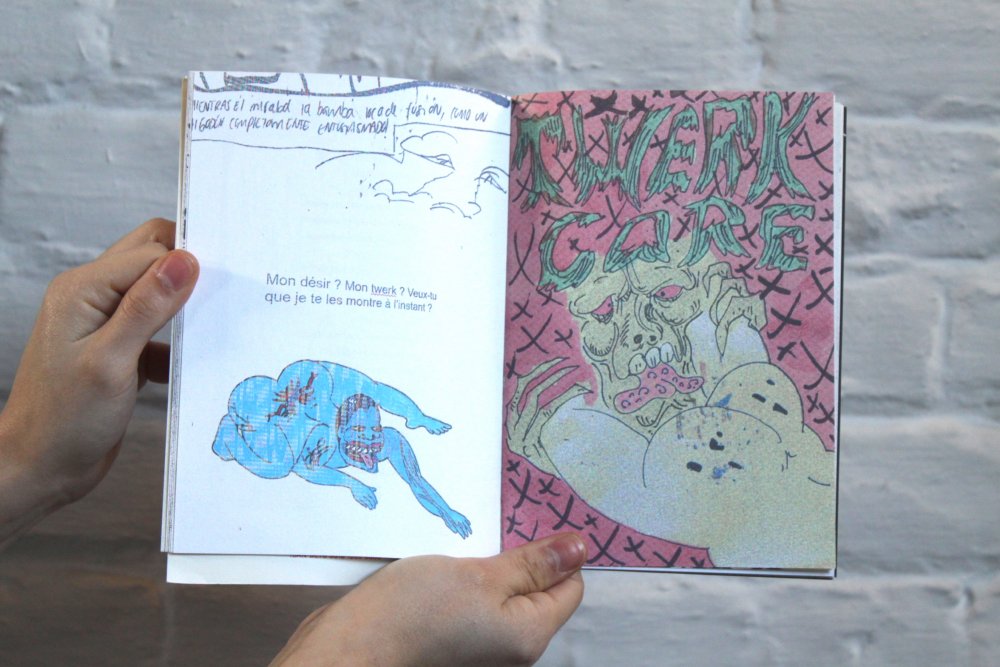 MIENTRAS ÉL miraba la bomba de fusión, como un
COMPLETAMENTE ENTUSIASMADO
Mon désir ? Mon twerk ? Veux-tu
que je te les montre à l'instant ?
TWERK
CORE